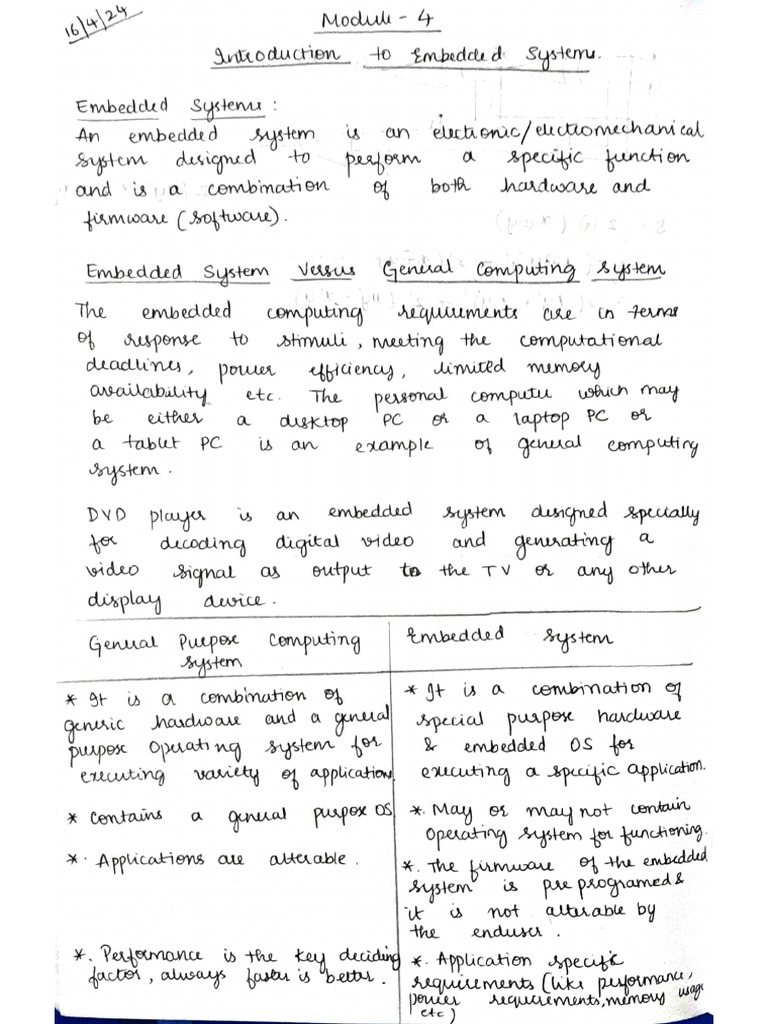 16/4/24
Module - 4
Introduction to Embedded Systems.
Embedded Systems :
An embedded system is an electronic/electromechanical
system designed to perform a specific function
and is a combination of both hardware and
firmware (software).
Embedded System Versus General Computing System
The embedded computing requirements are in terms
of response to stimuli, meeting the computational
deadlines, power efficiency, limited memory
availability etc. The personal computer which may
be either a desktop PC or a laptop PC or
a tablet PC is an example of general computing
system.
DVD player is an embedded system designed specially
for decoding digital video and generating a
video signal as output to the TV or any other
display device.
General Purpose Computing
System
* It is a combination of
generic hardware and a general
purpose Operating system for
executing variety of applications
* Contains a general purpose OS
*. Applications are alterable.
*. Performance is the key deciding
factor, always faster is better.
Embedded System
* It is a combination of
special purpose hardware
& embedded OS for
executing a specific application.
*. May or may not contain
Operating system for functioning.
*. The firmware of the embedded
system is pre programed &
it is not alterable by
the enduser.
*. Application specific
requirements (like performance,
power requirements, memory usage
etc)